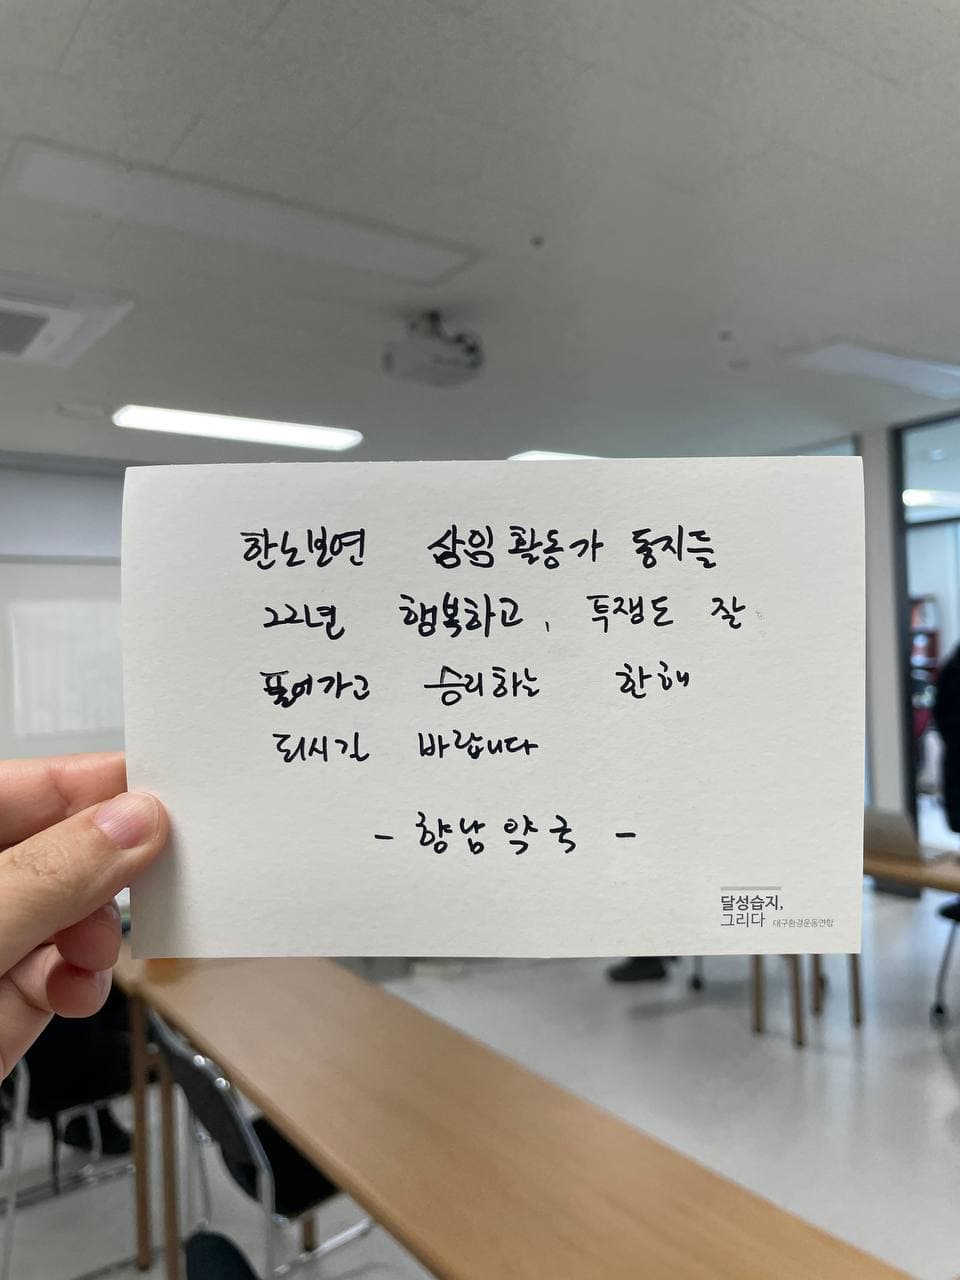 한노보연 상임활동가 동지들
22년 행복하고, 투쟁도 잘
풀어가고 승리하는 한해
되시길 바랍니다
- 향남약국 -
달성습지,
그리다 대구환경운동연합